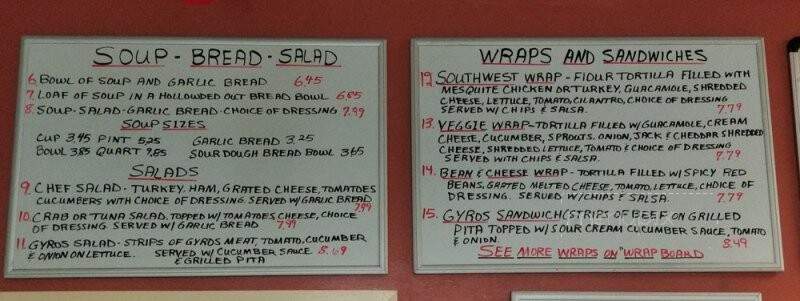 SOUP - BREAD - SALAD
6. BOWL OF SOUP AND GARLIC BREAD 6.45
7. LOAF OF SOUP IN A HOLLOWDED OUT BREAD BOWL 6.85
8. SOUP-SALAD-GARLIC BREAD-CHOICE OF DRESSING 7.99
SOUP SIZES
CUP 3.45 PINT 5.25 GARLIC BREAD 3.25
BOWL 3.85 QUART 7.85 SOUR DOUGH BREAD BOWL 3.65
SALADS
9. CHEF SALAD - TURKEY, HAM, GRATED CHEESE, TOMATOES
CUCUMBERS WITH CHOICE OF DRESSING. SERVED W/ GARLIC BREAD
7.99
10. CRAB OR TUNA SALAD, TOPPED W/ TOMATOES, CHEESE, CHOICE
OF DRESSING. SERVED W/ GARLIC BREAD 7.99
11. GYROS SALAD - STRIPS OF GYROS MEAT, TOMATO, CUCUMBER
& ONION ON LETTUCE. SERVED W/ CUCUMBER SAUCE 8.69
& GRILLED PITA
WRAPS AND SANDWICHES
12. SOUTHWEST WRAP - FLOUR TORTILLA FILLED WITH
MESQUITE CHICKEN OR TURKEY, GUACAMOLE, SHREDDED
CHEESE, LETTUCE, TOMATO, CILANTRO, CHOICE OF DRESSING
SERVED W/ CHIPS & SALSA. 7.79
13. VEGGIE WRAP - TORTILLA FILLED W/ GUACAMOLE, CREAM
CHEESE, CUCUMBER, SPROUTS, ONION, JACK & CHEDDAR SHREDDED
CHEESE, SHREDDED LETTUCE, TOMATO & CHOICE OF DRESSING
SERVED WITH CHIPS & SALSA. 7.79
14. BEAN & CHEESE WRAP - TORTILLA FILLED W/ SPICY RED
BEANS, GRATED MELTED CHEESE, TOMATO, LETTUCE, CHOICE OF
DRESSING. SERVED W/ CHIPS & SALSA. 7.79
15. GYROS SANDWICH (STRIPS OF BEEF ON GRILLED
PITA TOPPED W/ SOUR CREAM CUCUMBER SAUCE, TOMATO
& ONION. 8.49
SEE MORE WRAPS ON "WRAP BOARD